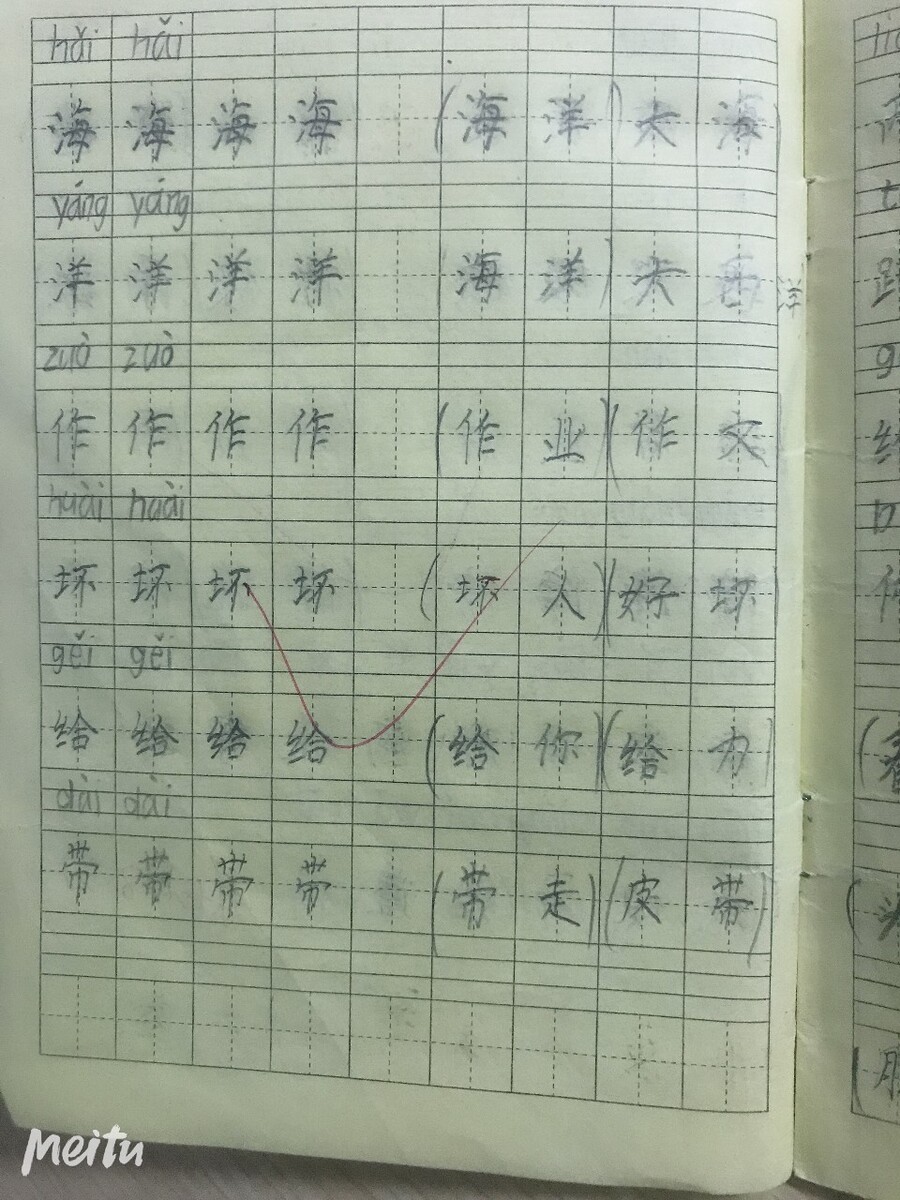 hǎi hǎi
海 海 海 海 (海 洋) 大 海)
yáng yáng
洋 洋 洋 洋 海 洋) 大 洋
zuò zuò
作 作 作 作 (作 业)(作 文
huài huài
坏 坏 坏 坏 (坏 人)(好 坏
gěi gěi
给 给 给 给 (给 你)(给 力)
dài dài
带 带 带 带 (带 走)(皮 带)
Meitu